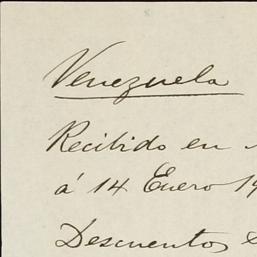 Venezuela
Recibido en
á 14 Enero 19
Descuentos